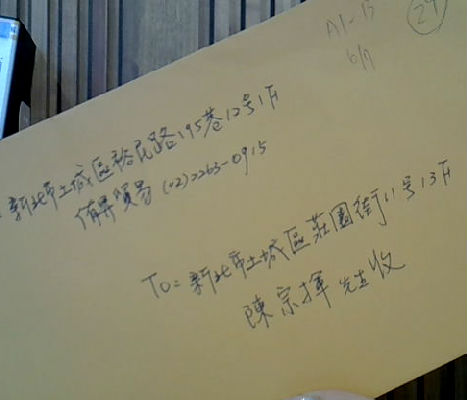 A1-B
6/1
29
新北市土城區裕民路195巷12号1F
備昇貿易 (02)2263-0915
To: 新北市土城區莊園街11号13F
陳宗揮 先生收